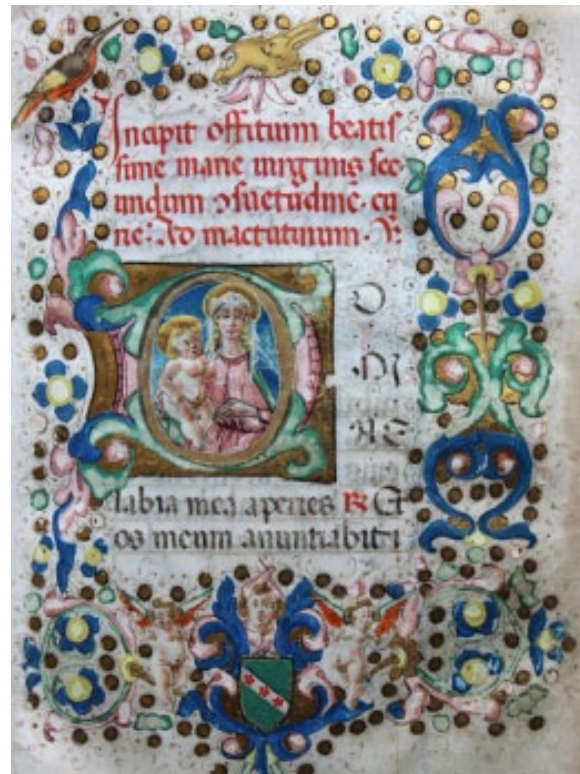 Incipit offitium beatis
sime marie uirginis sec
undum ↄsuetudinē cu
rie: Ad mactutinum. ℣:
D O
MI
NE
labia mea aperies ℟ Et
os meum anuntiabit